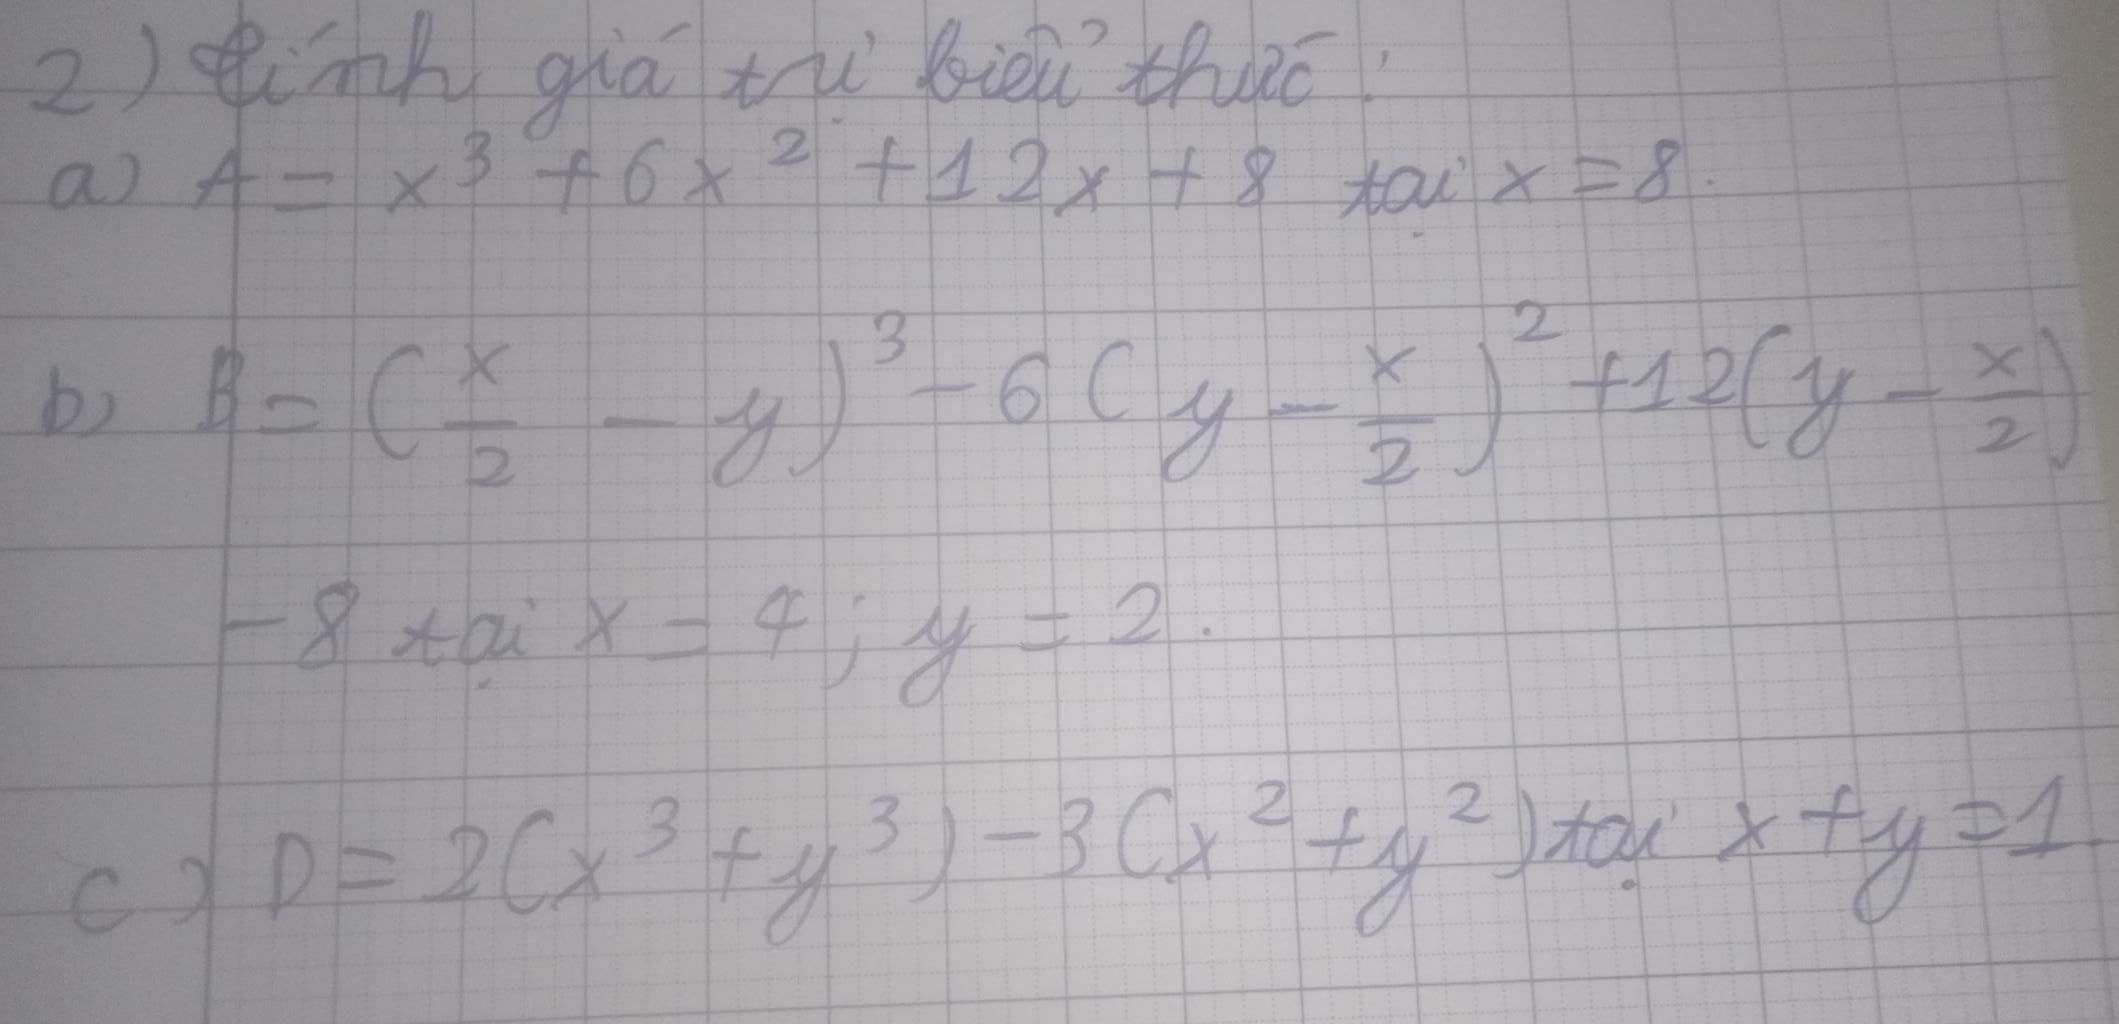 2) Tính giá trị biểu thức:
a) A = x³ + 6x² + 12x + 8 tại x = 8.
b) B = (x/2 - y)³ - 6(y - x/2)² + 12(y - x/2)
- 8 tại x = 4; y = 2.
c) D = 2(x³ + y³) - 3(x² + y²) tại x + y = 1.